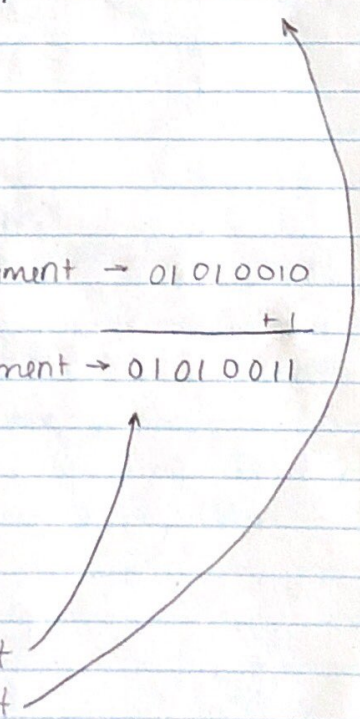 ment → 01010010
+1
ment → 01010011
t
t